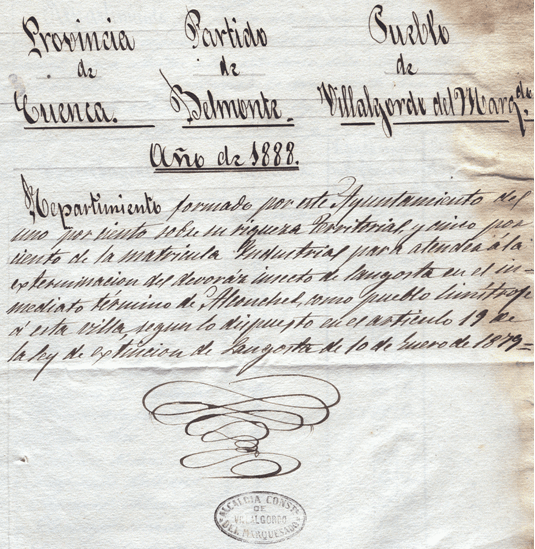 Provincia Partido Pueblo
de de de
Cuenca. Belmonte. Villalgordo del Marq.do
Año de 1888.
Repartimiento formado por este Ayuntamiento del
uno por siento sobre su riqueza Territorial, y cinco por
ciento de la matricula Industrial para atender a la
exterminacion del devoráz insecto de langosta en el in-
mediato término de Alconchel, como pueblo limitrofe
á esta villa, segun lo dispuesto en el articulo 19 de
la ley de extincion de langosta de 10 de enero de 1879=
ALCALDIA CONST.
DE
VILLALGORDO
DEL MARQUESADO